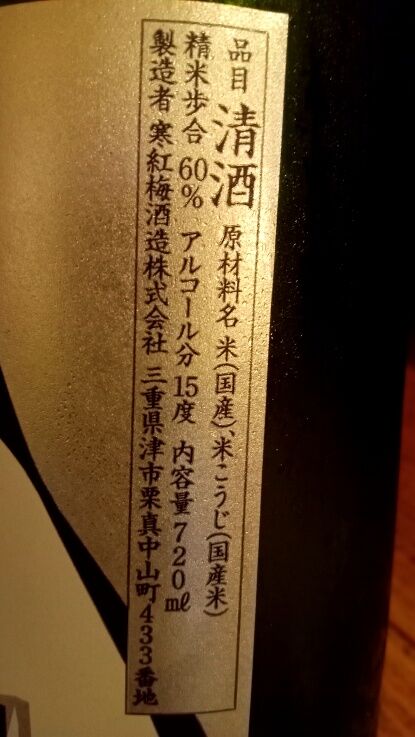 品目 清酒 原材料名 米(国産)、米こうじ(国産米)
精米歩合 60% アルコール分 15度 内容量 720㎖
製造者 寒紅梅酒造株式会社 三重県津市栗真中山町433番地